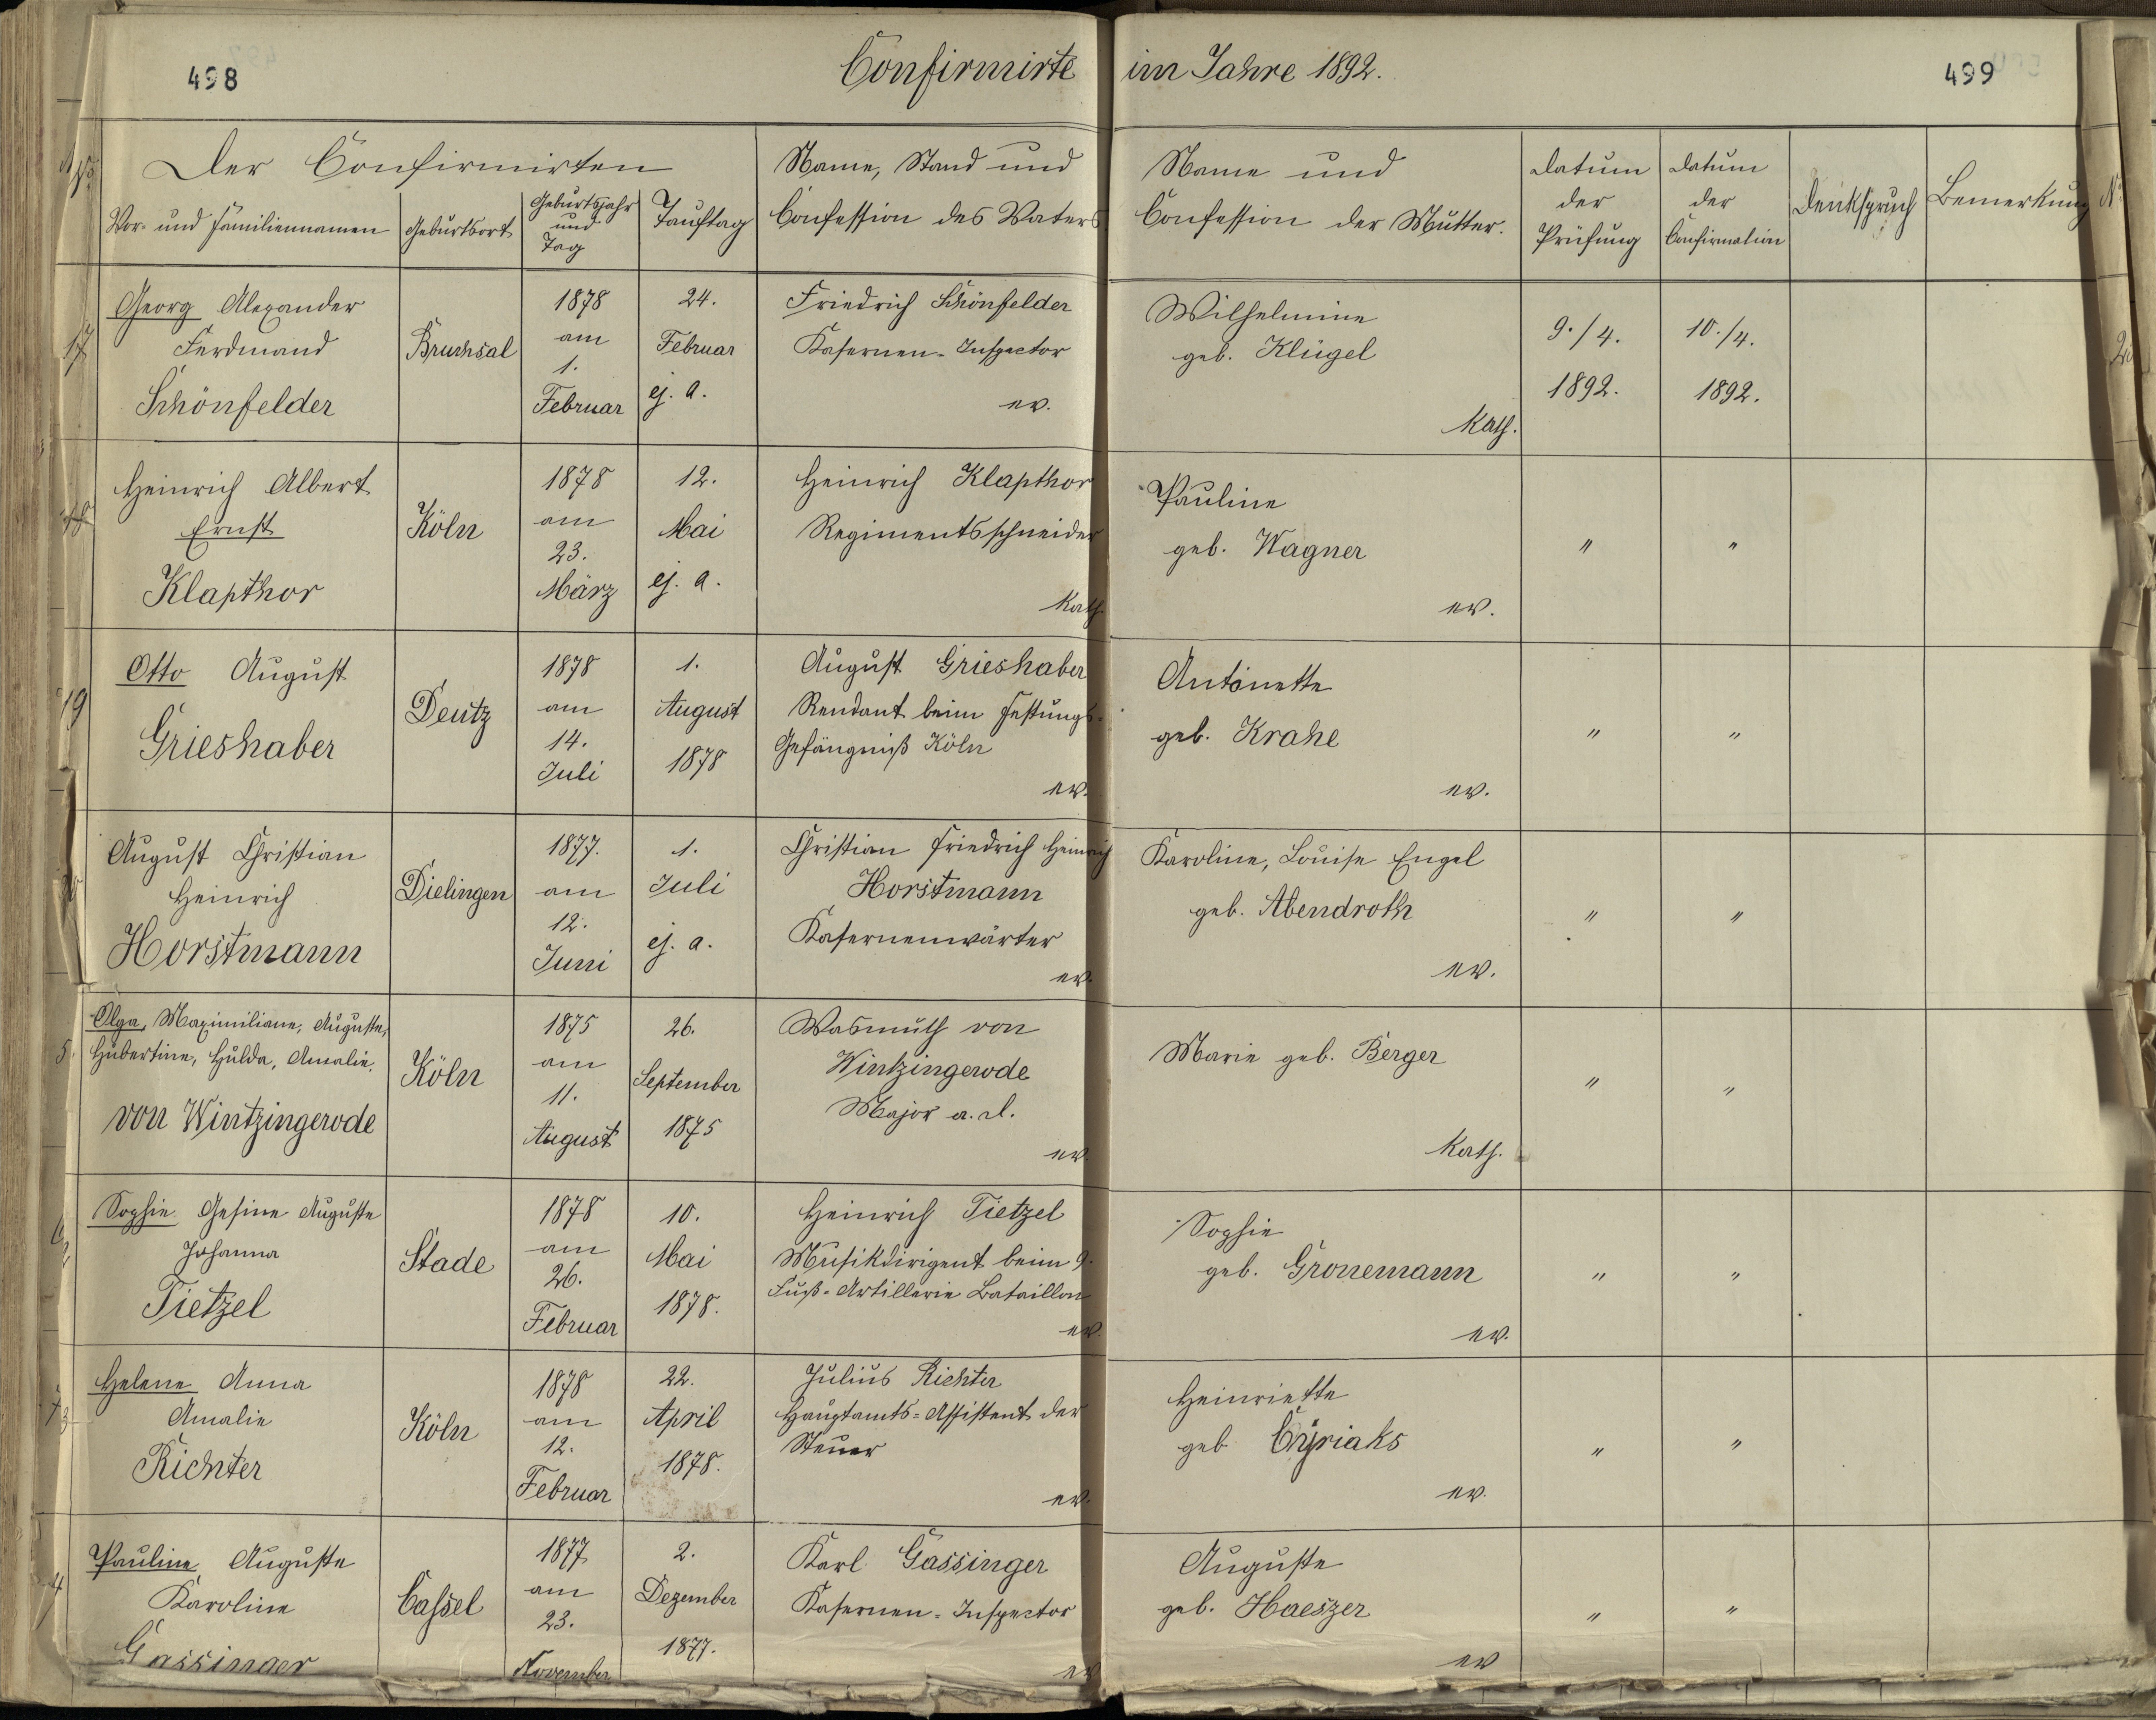 498
Confirmirte im Jahre 1892.
499
Der Confirmirten
Vor- und Familiennamen
Geburtsort
Geburtsjahr
und
Tag
Tauftag
Name, Stand und
Confession des Vaters
Name und
Confession der Mutter.
Datum
der
Prüfung
Datum
der
Confirmation
Denkspruch
Bemerkung
17
Georg Alexander
Ferdinand
Schönfelder
Bruchsal
1878
am
1.
Februar
24.
Februar
ej. a.
Friedrich Schönfelder
Kasernen-Inspector
ev.
Wilhelmine
geb. Klügel
kath.
9./4.
1892.
10./4.
1892.
18
Heinrich Albert
Ernst
Klapthor
Köln
1878
am
23.
März
12.
Mai
ej. a.
Heinrich Klapthor
Regimentsschneider
kath.
Pauline
geb. Wagner
ev.
"
"
19
Otto August
Grieshaber
Deutz
1878
am
14.
Juli
1.
August
1878
August Grieshaber
Rendant beim Festungs-
Gefängniß Köln
ev.
Antönette
geb. Krahe
ev.
"
"
August Christian
Heinrich
Horstmann
Dielingen
1877.
am
12.
Juni
1.
Juli
ej. a.
Christian Friedrich Heinrich
Horstmann
Kasernenwärter
ev.
Karoline, Louise Engel
geb. Abendroth
ev.
"
"
Olga, Maximiliane, Auguste,
Hubertine, Hulda, Amalie.
von Wintzingerode
Köln
1875
am
11.
August
26.
September
1875
Wasmuth von
Wintzingerode
Major a. D.
ev.
Marie geb. Berger
kath.
"
"
Sophie Gesine Auguste
Johanna
Tietzel
Stade
1878
am
26.
Februar
10.
Mai
1878.
Heinrich Tietzel
Musikdirigent beim 9.
Fuß-Artillerie Bataillon
ev.
Sophie
geb. Gronemann
ev.
"
"
Helene Anna
Amalie
Richter
Köln
1878
am
12.
Februar
22.
April
1878.
Julius Richter
Hauptamts-Assistent der
Steuer
ev.
Heinriette
geb Cÿriaks
ev.
"
"
4
Pauline Auguste
Karoline
Gassinger
Cassel
1877
am
23.
November
2.
Dezember
1877.
Karl Gassinger
Kasernen-Inspector
ev
Auguste
geb. Haeszer
ev
"
"